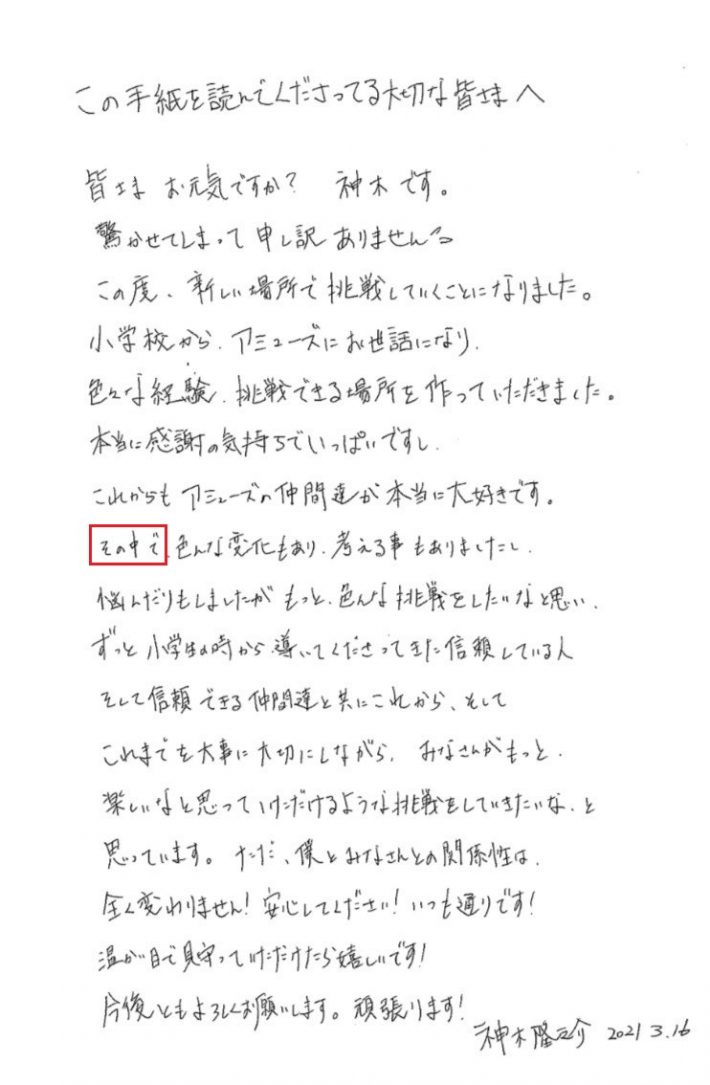 この手紙を読んでくださってる大切な皆さまへ
皆さま お元気ですか? 神木です。
驚かせてしまって申し訳ありません。
この度、新しい場所で挑戦していくことになりました。
小学校から、アミューズにお世話になり、
色々な経験、挑戦できる場所を作っていただきました。
本当に感謝の気持ちでいっぱいですし、
これからもアミューズの仲間達が本当に大好きです。
その中で、色んな変化もあり、考える事もありましたし、
悩んだりもしましたがもっと、色んな挑戦をしたいなと思い、
ずっと小学生の時から導いてくださってきた信頼している人
そして信頼できる仲間達と共にこれから、そして
これまでを大事に大切にしながら、みなさんがもっと、
楽しいなと思っていただけるような挑戦をしていきたいな、と
思っています。ただ、僕とみなさんとの関係性は、
全く変わりません!安心してください!いつも通りです!
温か目で見守っていただけたら嬉しいです!
今後ともよろしくお願いします。頑張ります!
神木隆之介 2021 3.16